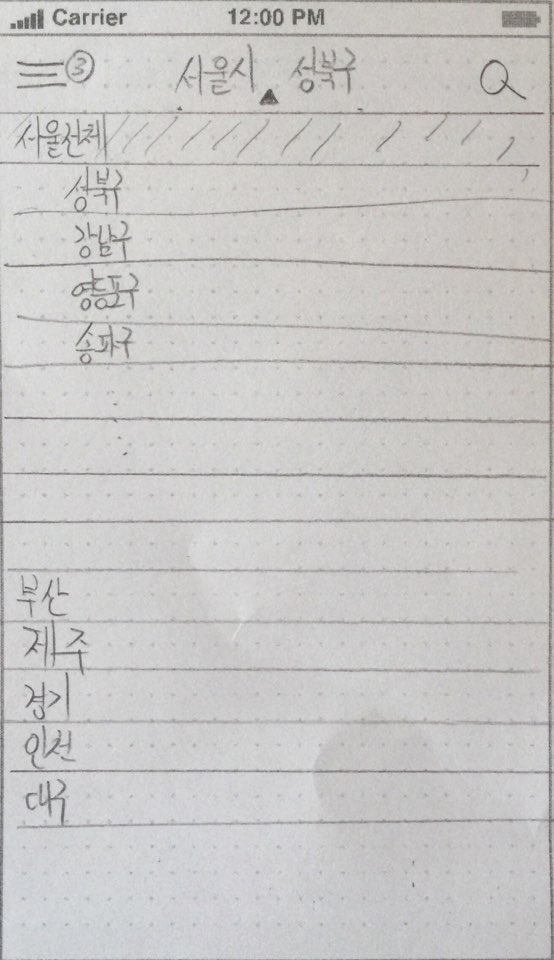 Carrier 12:00 PM
③ 서울시 성북구
서울전체
성북구
강남구
영등포구
송파구
부산
제주
경기
인천
대구